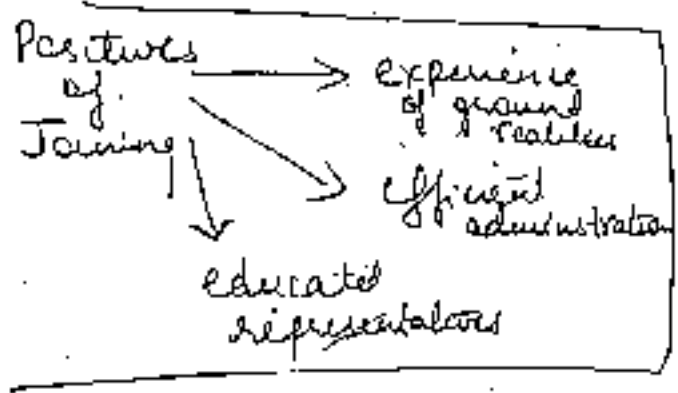 Positives
of
Joining
experience
of ground
realities
efficient
administration
educated
representatives